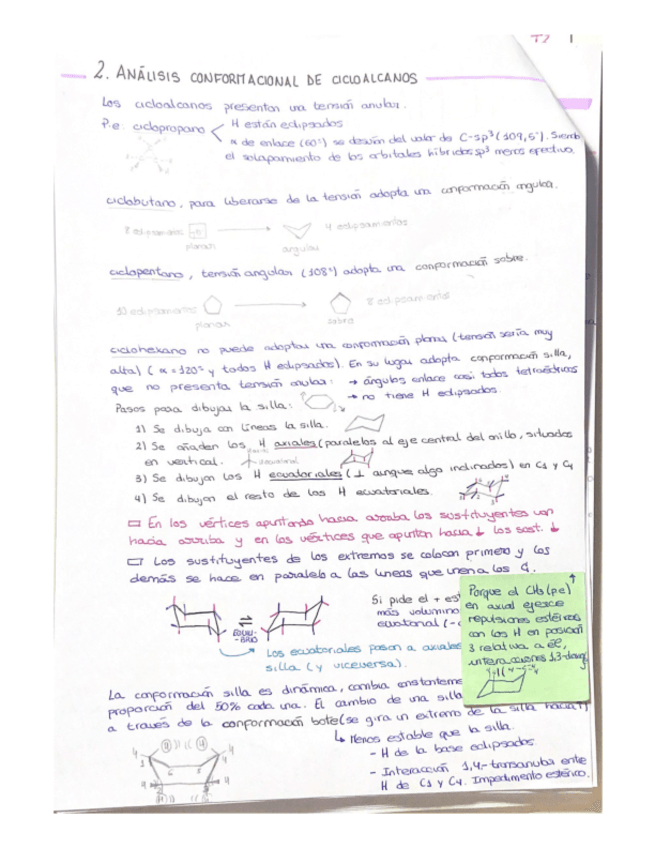 T2 1
2. ANÁLISIS CONFORMACIONAL DE CICLOALCANOS
Los cicloalcanos presentan una tensión anular.
P.e: ciclopropano < H están eclipsados
α de enlace (60°) se desvían del valor de C-sp³ (109,5°). Siendo
el solapamiento de los orbitales híbridos sp³ menos efectivo.
ciclobutano, para liberarse de la tensión adopta una conformación angular.
8 eclipsamientos → 4 eclipsamientos
planar angular
ciclopentano, tensión angular (108°) adopta una conformación sobre.
10 eclipsamientos → 8 eclipsamientos
planar sobre
ciclohexano no puede adoptar una conformación plana (tensión sería muy
alta) (α = 120° y todos H eclipsados). En su lugar adopta conformación silla,
que no presenta tensión anular: → ángulos enlace casi todos tetraédricos
→ no tiene H eclipsados.
Pasos para dibujar la silla:
1) Se dibuja con líneas la silla.
2) Se añaden los H axiales (paralelos al eje central del anillo, situados
en vertical.
3) Se dibujan los H ecuatoriales (⊥ aunque algo inclinados) en C1 y C4
4) Se dibujan el resto de los H ecuatoriales.
En los vértices apuntando hacia arriba los sustituyentes van
hacia arriba y en los vértices que apuntan hacia ↓ los sust. ↓
Los sustituyentes de los extremos se colocan primero y los
demás se hace en paralelo a las líneas que unen a los C.
Si pide el + es
más volumino
ecuatorial (-
EQUILI-
BRIO
Los ecuatoriales pasan a axiales
silla (y viceversa).
Porque el CH₃ (pe)
en axial ejerce
repulsiones estéricas
con los H en posición
3 relativa a él,
interacciones 1,3-diaxg
La conformación silla es dinámica, cambia constanteme
proporción del 50% cada una. El cambio de una silla
a través de la conformación bote (se gira un extremo de la silla hacia ↑)
↳ Menos estable que la silla.
- H de la base eclipsados
- Interacción 1,4,-transanular entre
H de C1 y C4. Impedimento estérico.